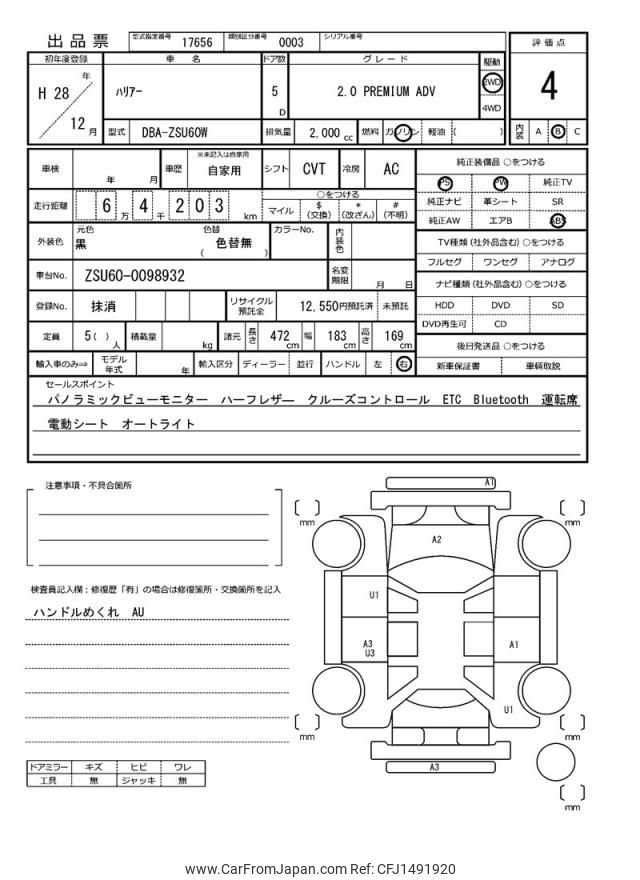 出品票
型式指定番号 17656 類別区分番号 0003 シリアル番号
評価点
4
内装 A B C
初年度登録 車名 ドア数 グレード 駆動
H 28 年 12 月
ハリアー 5 D 2.0 PREMIUM ADV 2WD 4WD
型式 DBA-ZSU60W 排気量 2,000 cc 燃料 ガソリン 軽油 ( )
車検 年 月 車歴 ※未記入は自家用 自家用 シフト CVT 冷房 AC
走行距離 6 万 4 千 2 0 3 km
○をつける
マイル $(交換) *(改ざん) #(不明)
外装色 元色 黒 色替 色替無 ( ) カラーNo. 内装色
車台No. ZSU60-0098932 名変期限 月 日
登録No. 抹消 リサイクル預託金 12,550円預託済 未預託
定員 5( )人 積載量 kg 諸元 長さ 472 cm 幅 183 cm 高さ 169 cm
輸入車のみ⇒ モデル年式 年 輸入区分 ディーラー 並行 ハンドル 左 右
純正装備品 ○をつける
PS PW 純正TV
純正ナビ 革シート SR
純正AW エアB ABS
TV種類(社外品含む) ○をつける
フルセグ ワンセグ アナログ
ナビ種類(社外品含む) ○をつける
HDD DVD SD
DVD再生可 CD
後日発送品 ○をつける
新車保証書 車輌取説
セールスポイント
パノラミックビューモニター ハーフレザー クルーズコントロール ETC Bluetooth 運転席
電動シート オートライト
注意事項・不具合箇所
検査員記入欄：修復歴「有」の場合は修復箇所・交換箇所を記入
ハンドルめくれ AU
ドアミラー キズ ヒビ ワレ
工具 無 ジャッキ 無
A1
mm
mm
A2
U1
A3
U3
A1
U1
mm
mm
A3
mm
www.CarFromJapan.com Ref: CFJ1491920